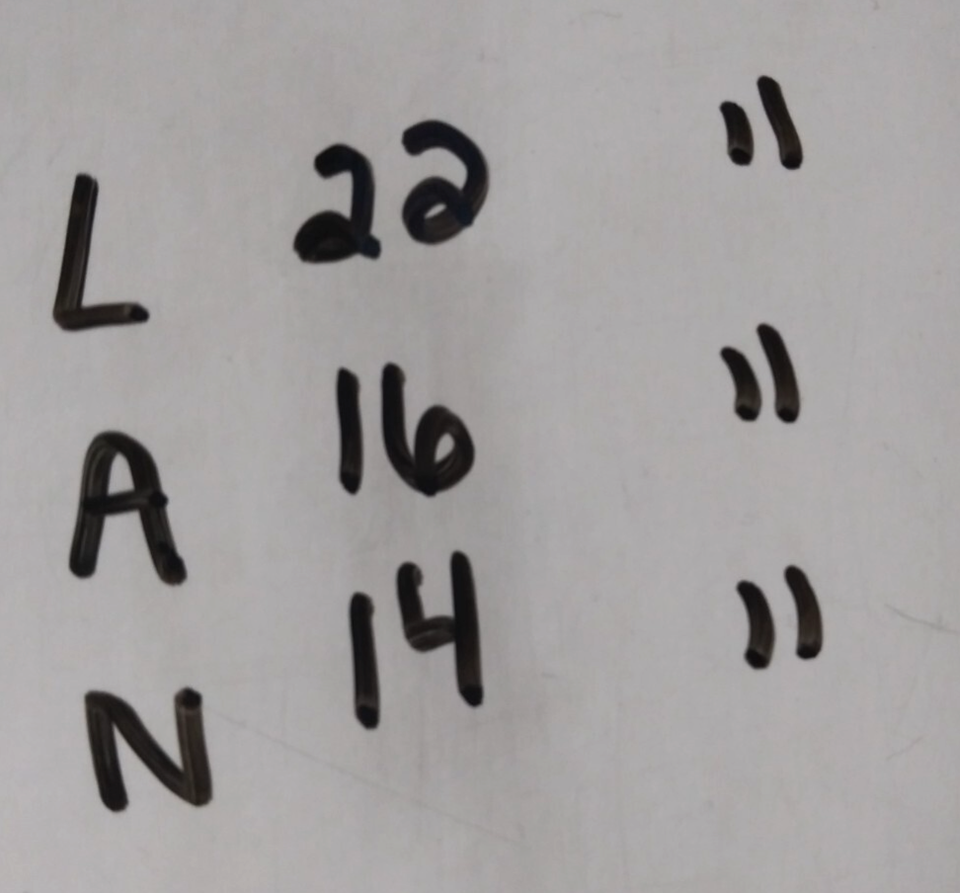 L 22 "
A 16 "
N 14 "